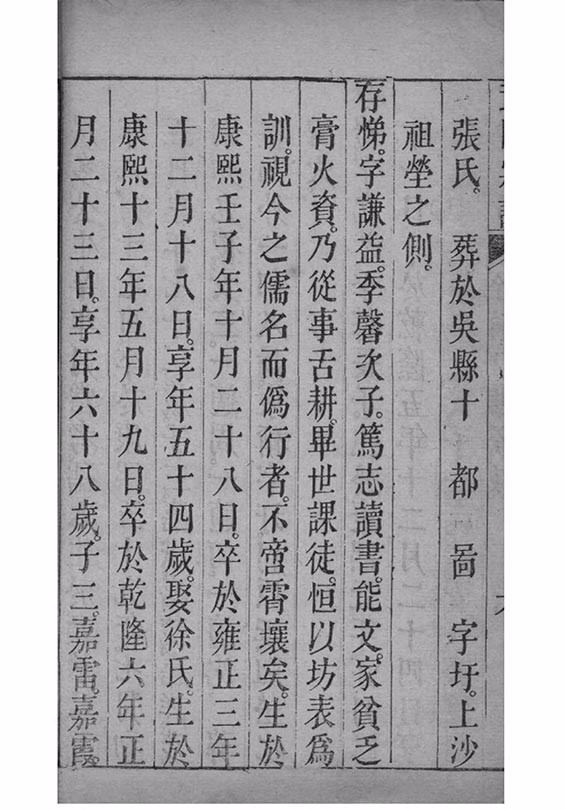 張氏。 葬於吳縣十 都 啚 字圩。上沙
祖塋之側。
存悌。字謙益。季馨次子。篤志讀書。能文。家貧乏
膏火資。乃從事舌耕。畢世課徒。恒以坊表爲
訓。視今之儒名而僞行者。不啻霄壤矣。生於
康熙壬子年十月二十八日。卒於雍正三年
十二月十八日。享年五十四歲。娶徐氏。生於
康熙十三年五月十九日。卒於乾隆六年正
月二十三日。享年六十八歲。子三。嘉雷。嘉霞。